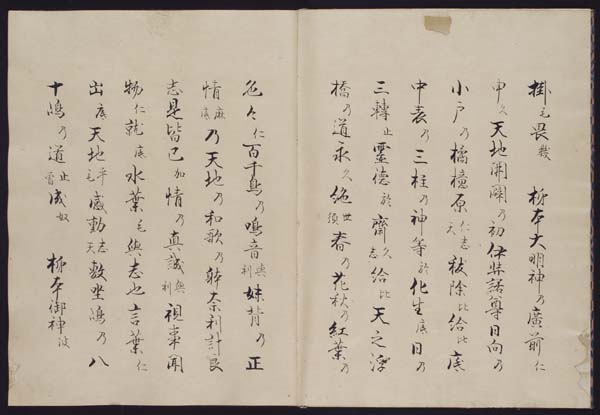 掛毛畏幾 柿本大明神乃廣前仁
申久天地開闢乃初伊弉諾尊日向乃
小戸乃橘檍原仁志秡除比給比底
中表乃三柱乃神等於化生底日乃
三轉止靈德於齊久志給比天之浮
橋乃道永久絶世須春乃花秋乃紅葉乃
色々仁百千鳥乃鳴音與利妹背乃正
情麻底乃天地乃和歌乃躰奈利計良
志是皆己加情乃真誠與利視事聞
物仁就底水葉毛與志也言葉仁
出底天地乎毛感動志天敷坐嶋乃八
十嶋乃道止曾成奴 柿本御神波